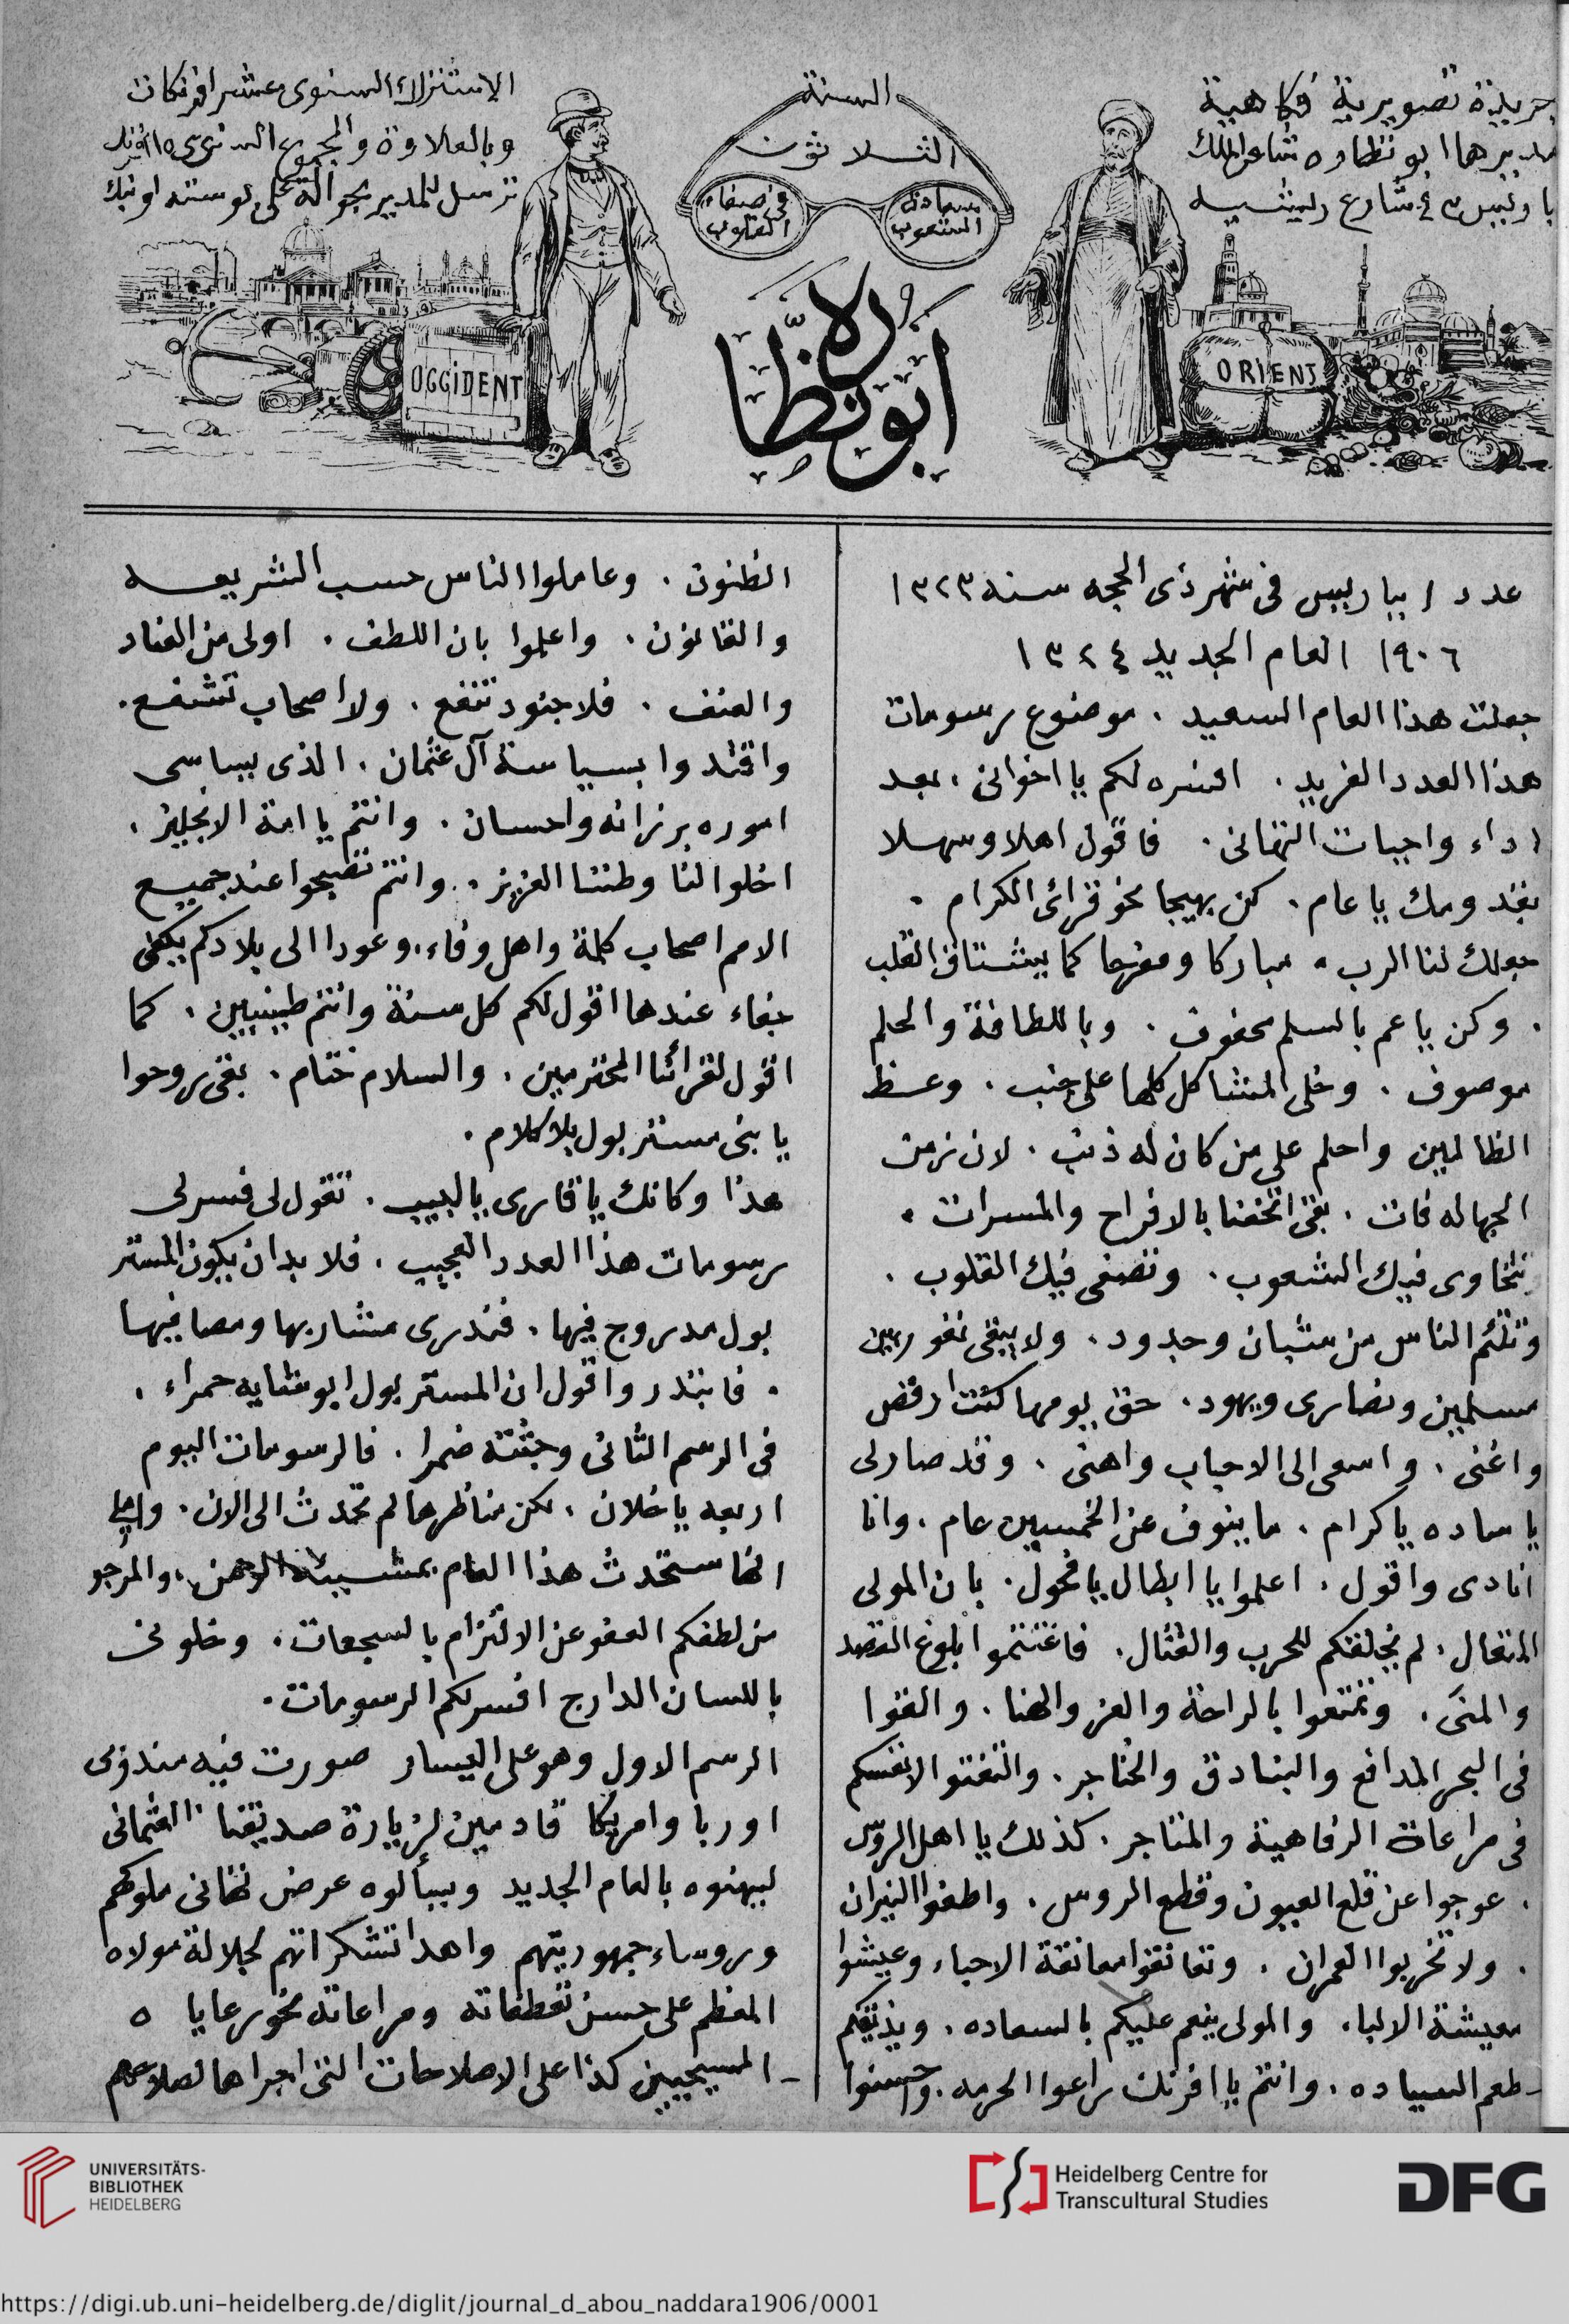 جريدة تصويرية فكاهية
مديرها ابو نظاره شاعر الملك
بباريس ٤٣ شارع ريشيه
السنة
الثلاثون
سعادة الشعوب
في صفاء القلوب
أبو نظارة
الاشتراك السنوى عشر افرنكات
وبالعلاوة والمجموع السنوى ١٥ افرنك
ترسل للمدير بحوالة على بوسته او بنك
ORIENT
OCCIDENT
عدد ١ بباريس فى شهر ذى الحجه سنه ١٣٢٣
١٩٠٦ العام الجديد ١٣٢٤
جعلت هذا العام السعيد . موضوع رسومات
هذا العدد الفريد . افسره لكم يا اخوانى . بعد
اداء واجبات التهانى . فاقول اهلا وسهلا
بقدومك يا عام . كن بهيجا نحو قرائى الكرام .
جعلك لنا الرب . مباركا ومفرحا كما يشتاق القلب
. وكن يا عم بالسلم محفوف . وباللطافة والحلم
موصوف . وخلى المشاكل كلها على جنب . وعظ
الظالمين واحلم على من كان له ذنب . لان زمن
الجهاله فات . بقى اتحفنا بالافراح والمسرات .
تتخاوى فيك الشعوب . وتصفى فيك القلوب .
وتلتم الناس من شبان وجدود . ولا يبقى نفور بين
مسلمين ونصارى ويهود . حق يومها كنت ارقص
واغنى . واسعى الى الاحباب واهنى . وقد صار لى
يا ساده يا كرام . ما ينوف عن الخمسين عام . وانا
انادى واقول . اعلموا يا ابطال يا فحول . بان المولى
المتعال . لم يخلقكم للحرب والقتال . فاغتنموا بلوغ القصد
والمنى . وتمتعوا بالراحة والعز والهنا . والقوا
فى البحر المدافع والبنادق والخناجر . والتفتوا لانفسكم
فى مراعاة الرفاهية والمتاجر . كذلك يا اهل الروس
. عوجوا عن قلع العيون وقطع الروس . واطفوا النيران
. ولا تخربوا العمران . وتعانقوا معانقة الاحباء وعيشوا
معيشة الالباء . والمولى ينعم عليكم بالسعاده . ويذيقكم
طعم السياده . وانتم يا افرنك راعوا الحرمه . وحسنوا
الظنون . وعاملوا الناس حسب الشريعه
والقانون . واعلموا بان اللطف . اولى من العناد
والعنف . فلا جنود تنفع . ولا اصحاب تشفع .
واقتدوا بسياسة آل عثمان . الذى بيساسى
اموره برزانه واحسان . وانتم يا امة الانجليز .
اخلوا لنا وطننا العزيز . وانتم تصبحوا عند جميع
الامم اصحاب كلمة واهل وفاء . وعودا الى بلادكم يكفى
جفاء عندها اقول لكم كل سنة وانتم طيبين . كما
اقول لقرائنا المحترمين . والسلام ختام . بقى روحوا
يا بنى مستر بول بلا كلام .
هذا وكانك يا قارى يا لبيب . تقول لى فسر لى
رسومات هذا العدد العجيب . فلا بد ان يكون المستر
بول مدروج فيها . فندرى مشاربها ومصافيها
. فابتدر واقول ان المستر بول ابو شايه حمراء .
فى الرسم الثانى وجثته ضمرا . فالرسومات اليوم
اربعه يا خلان . لكن مناظرها لم تحدث الى الان . واملى
انها ستحدث هذا العام بمشيئة الرحمن . والمرجو
من لطفكم العفو عن الالتزام بالسجعات . وخلونى
باللسان الدارج افسر لكم الرسومات .
الرسم الاول وهو على اليسار صورت فيه مندوبى
اوربا وامريكا قادمين لزيارة صديقنا العثمانى
ليهنوه بالعام الجديد ويسألوه عرض تهانى ملوكهم
وروساء جمهوريتهم واهدا تشكراتهم لجلالة مولاه
المعظم على حسن تعطفاته ومراعاته نحو رعاياه
المسيحيين كذا على الاصلاحات التى اجراها لصلاحهم
UNIVERSITÄTS-
BIBLIOTHEK
HEIDELBERG
Heidelberg Centre for
Transcultural Studies
DFG
https://digi.ub.uni-heidelberg.de/diglit/journal_d_abou_naddara1906/0001